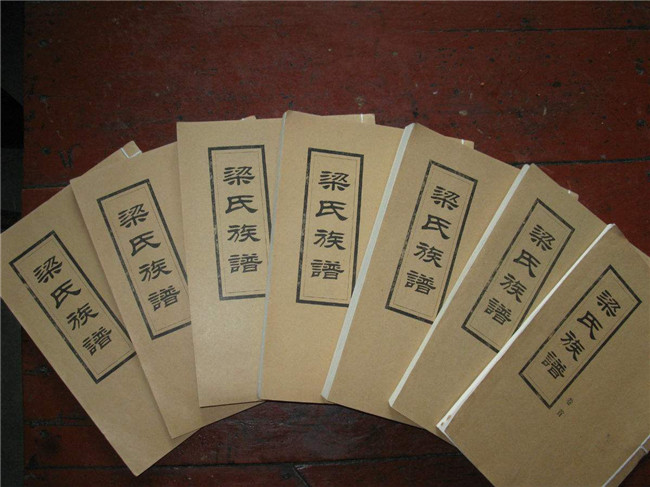 梁氏族譜
梁氏族譜
梁氏族譜
梁氏族譜
梁氏族譜
梁氏族譜
梁氏族譜